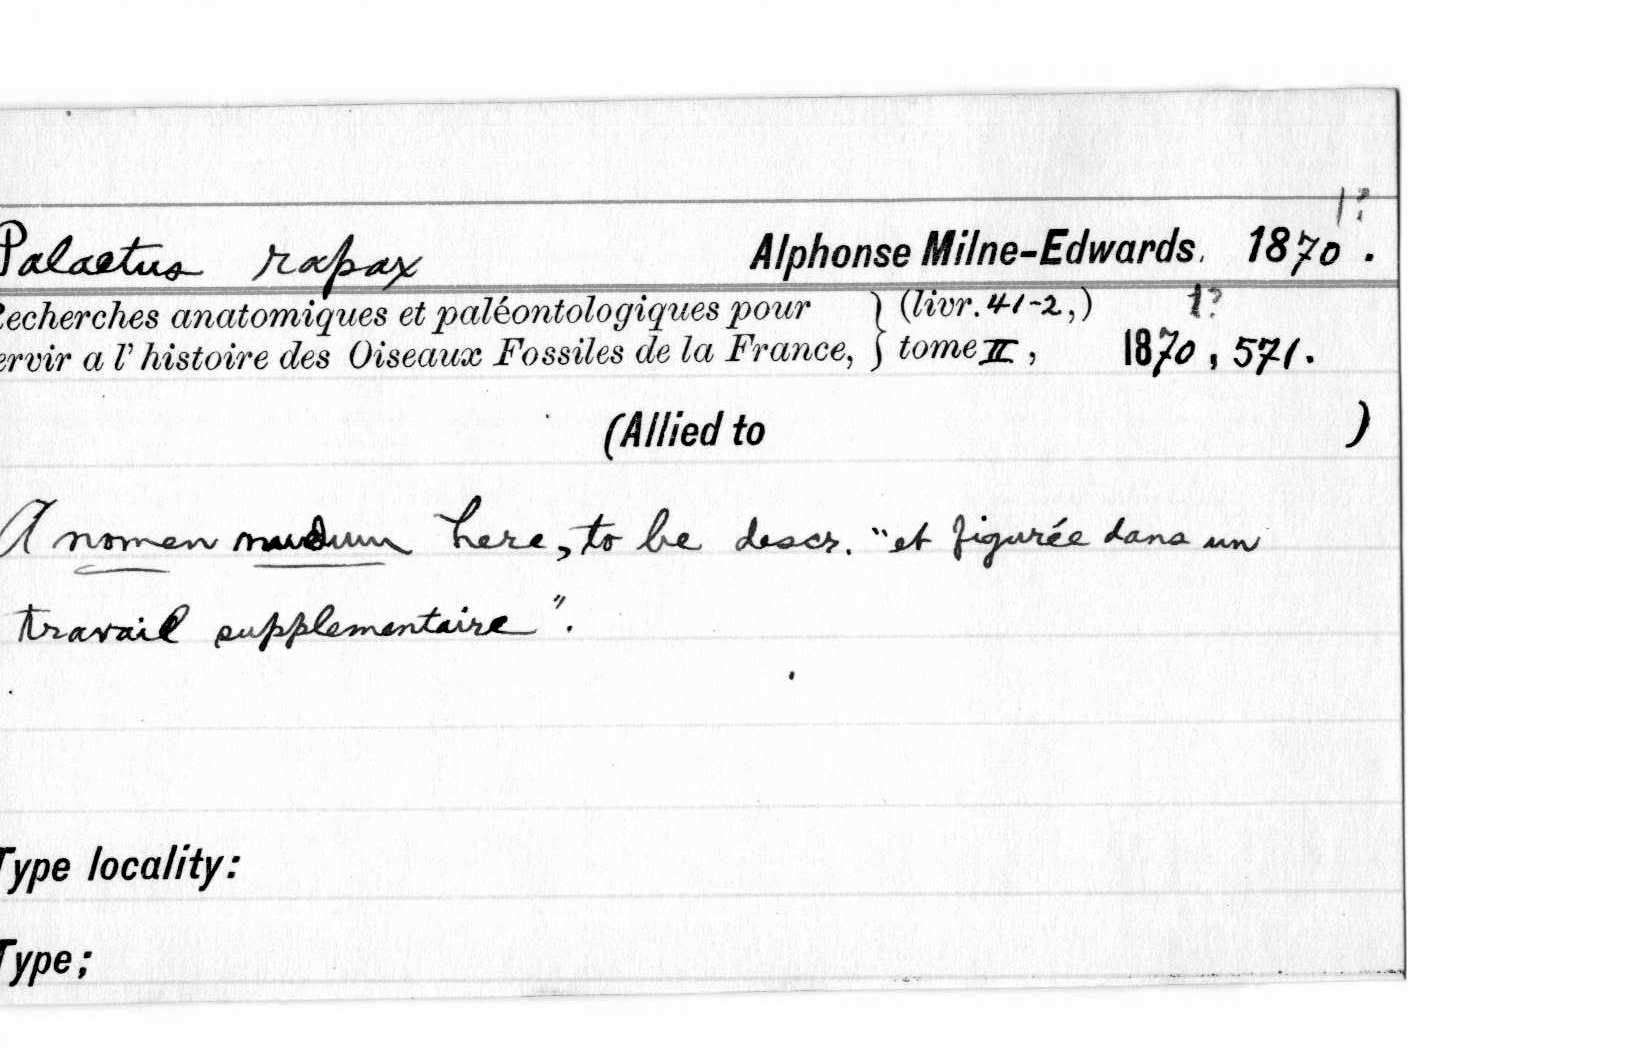 1?
Palaetus rapax Alphonse Milne-Edwards. 1870.
Recherches anatomiques et paléontologiques pour } (livr. 41-2,) 1?
ervir a l' histoire des Oiseaux Fossiles de la France, } tome II, 1870, 571.
(Allied to )
A nomen nudum here, to be descr. "et figurée dans un
travail supplementaire".
Type locality:
Type;